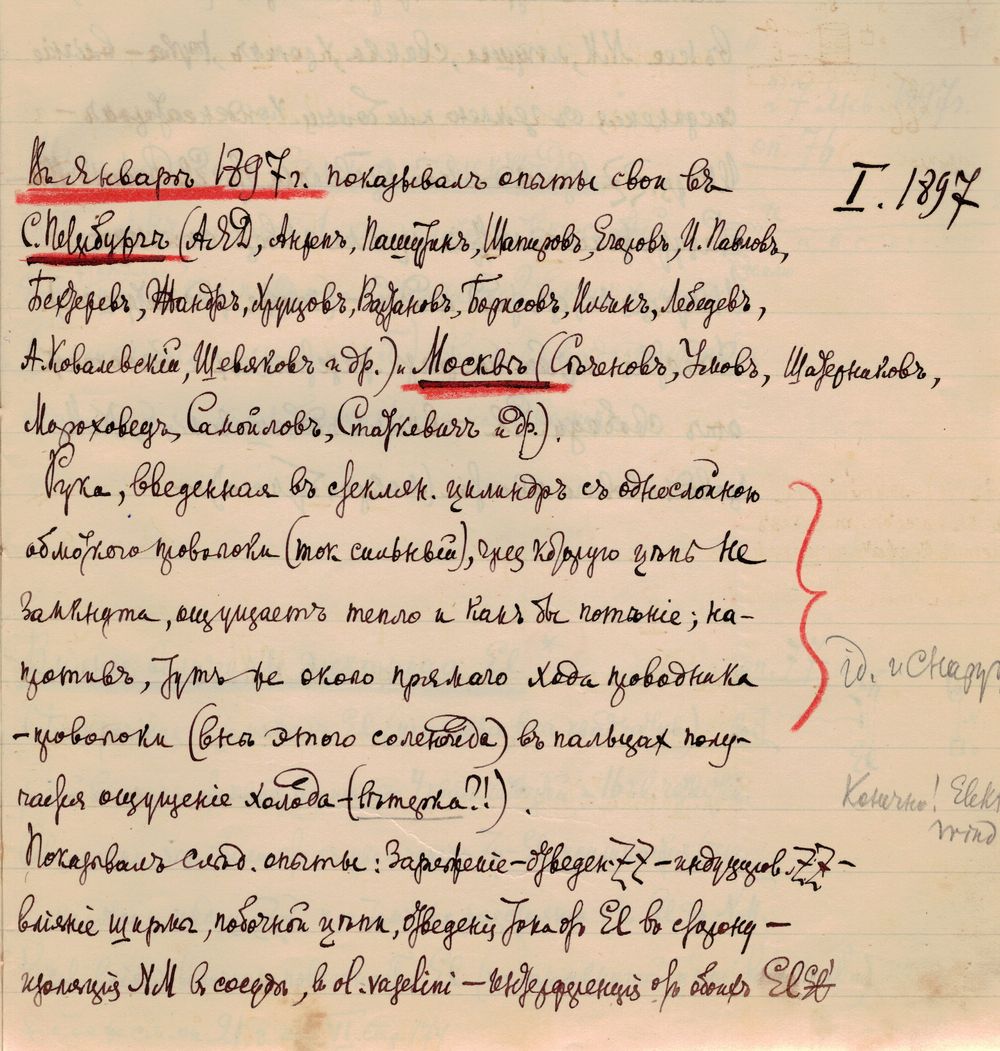 Въ январѣ 1897 г. показывалъ опыты свои въ
I. 1897
С. Петербургѣ (АЯД, Анрепъ, Пашутинъ, Шапировъ, Егоровъ, И. Павловъ,
Бехтеревъ, Жандръ, Хрущовъ, Вартановъ, Борисовъ, Ильинъ, Лебедевъ,
А. Ковалевскій, Шевяковъ и др.) и Москвѣ (Сѣченовъ, Умовъ, Шатерниковъ,
Мороховецъ, Самойловъ, Статкевичъ и др.).
Рука, введенная въ стеклян. цилиндръ съ однослойною
обмоткою проволоки (ток сильный), чрез которую цѣпь не
замкнута, ощущаетъ тепло и какъ бы потѣніе; на-
противъ, тутъ же около прямаго хода проводника
id. и снару
-проволоки (внѣ этого соленоида) въ пальцах полу-
чается ощущеніе холода - (вѣтерка?!).
Конечно! Elek
wind
Показывалъ слѣд. опыты: Заряженіе - отведен. - индуциров. -
вліяніе ширмы, побочной цѣпи, отведенія тока отъ El въ сторону -
изоляція NM въ сосуды, в ol. vaselini - интерференція отъ обоихъ El